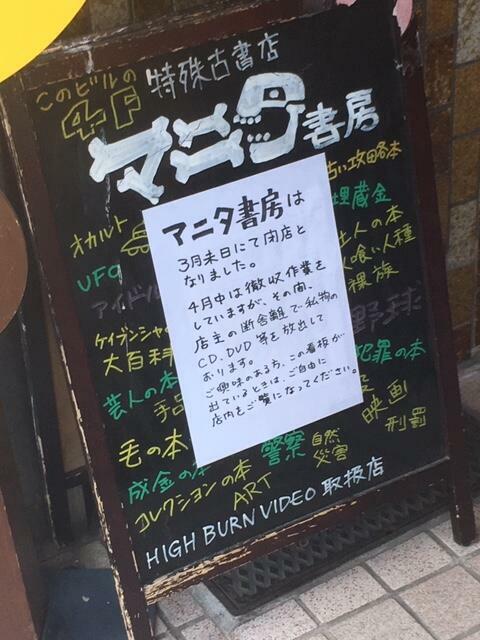 このビルの
4F
特殊古書店
マニタ書房
オカルト
UFO
アイドル
ケイブンシャ
大百科
芸人の本
手品
毛の本
成金の本
コレクションの本
ART
警察
自然
災害
古い攻略本
埋蔵金
人の本
人喰い人種
裸族
野球
犯罪の本
映画
刑罰
HIGH BURN VIDEO 取扱店
マニタ書房は
3月末日にて閉店と
なりました。
4月中は撤収作業を
していますが、その間、
店主の断舎離で私物の
CD、DVD等を放出して
おります。
ご興味のある方、この看板が
出ているときは、ご自由に
店内をご覧になってください。